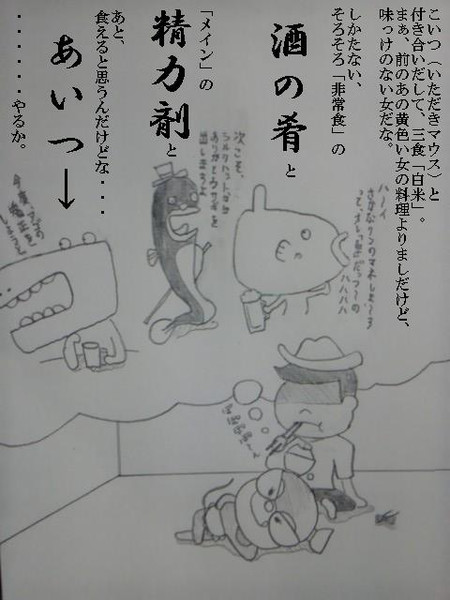 こいつ（いただきマウス）と
付き合いだして、三食「白米」。
まぁ、前のあの黄色い女の料理よりましだけど、
味っけのない女だな。
しかたない、
そろそろ「非常食」の
酒の肴と
「メイン」の
精力剤と
あと、
食えると思うんだけどな・・・
あいつ→
・・・・・・やるか。
ハーイ
ハハハハ
次こそ、
シルクハットから
ウサギを
出しますよ